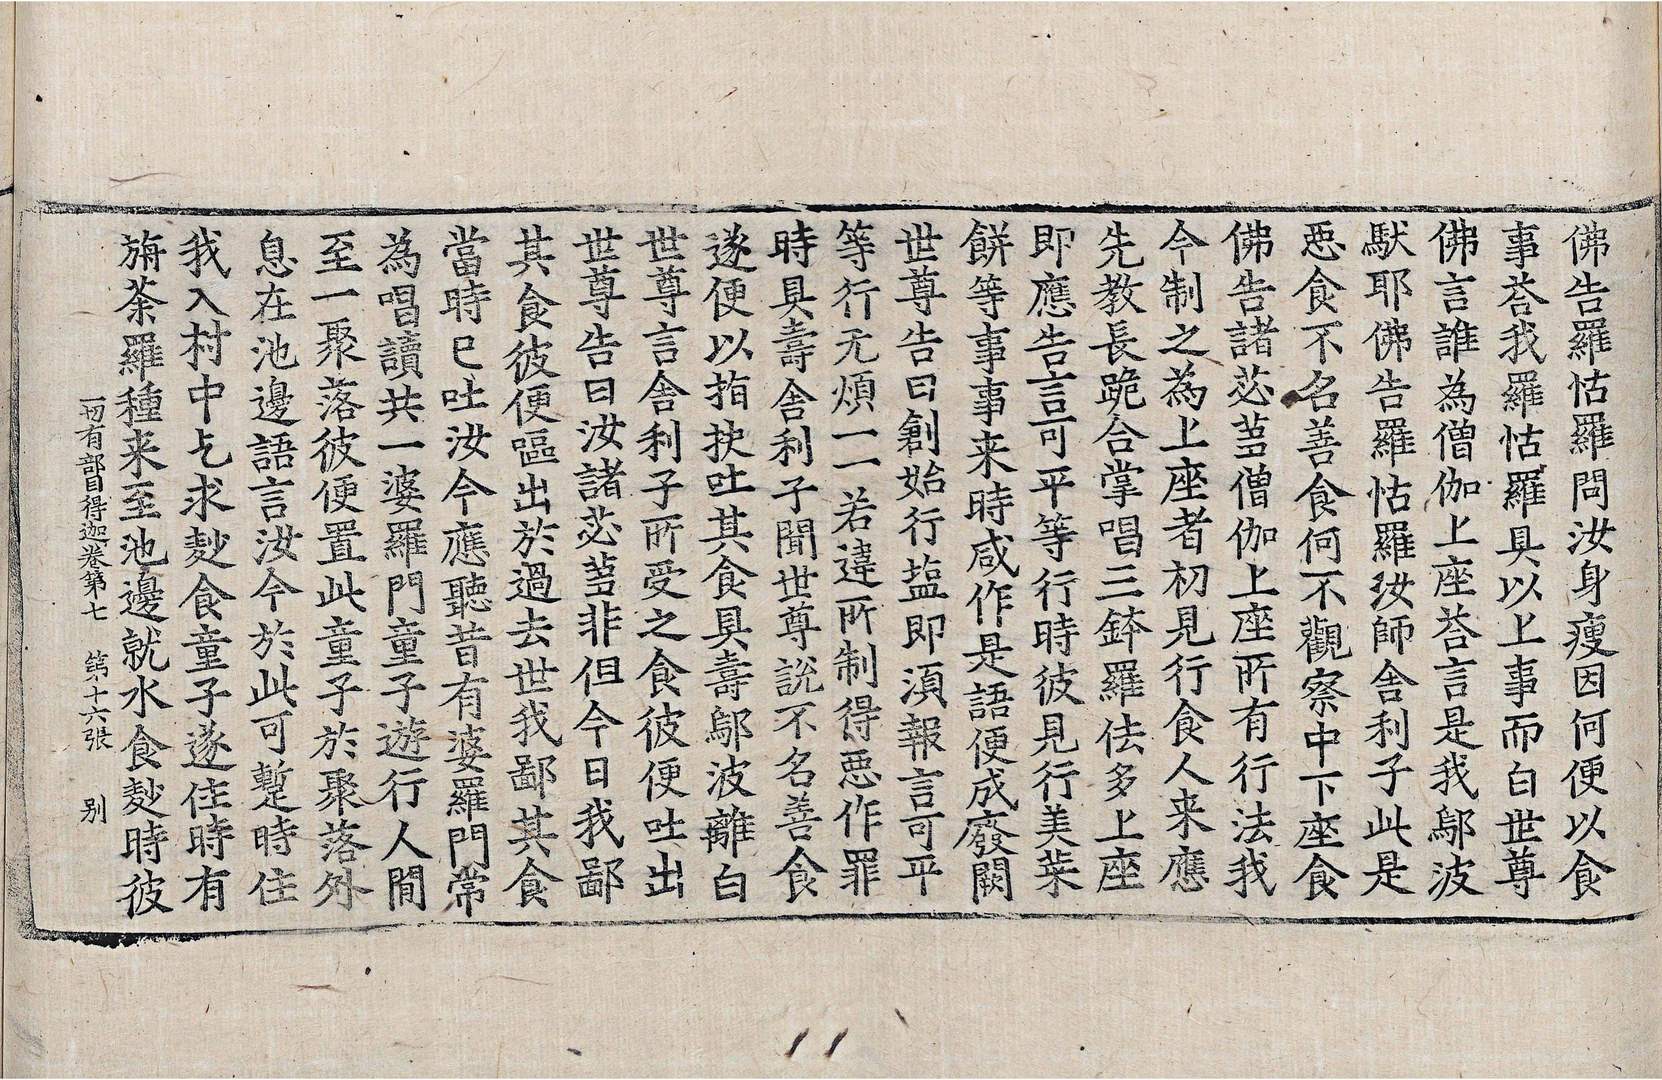 佛告羅怙羅問汝身瘦因何便以食
事荅我羅怙羅具以上事而白世尊
佛言誰為僧伽上座荅言是我鄔波
馱耶佛告羅怙羅汝師舍利子此是
惡食不名善食何不觀察中下座食
佛告諸苾芻僧伽上座所有行法我
今制之為上座者初見行食人来應
先教長跪合掌唱三鉢羅佉多上座
即應告言可平等行時彼見行美菜
餅等事事来時咸作是語便成廢闕
世尊告曰創始行塩即湏報言可平
等行无煩一一若違所制得惡作罪
時具壽舍利子聞世尊說不名善食
遂便以指抉吐其食具壽鄔波離白
世尊言舍利子所受之食彼便吐出
世尊告曰汝諸苾芻非但今日我鄙
其食彼便嘔出於過去世我鄙其食
當時已吐汝今應聽昔有婆羅門常
為唱讀共一婆羅門童子遊行人間
至一聚落彼便置此童子於聚落外
息在池邊語言汝今於此可蹔時住
我入村中乞求麨食童子遂住時有
旃荼羅種来至池邊就水食麨時彼
一切有部目得迦卷第七 第十六張 别
11